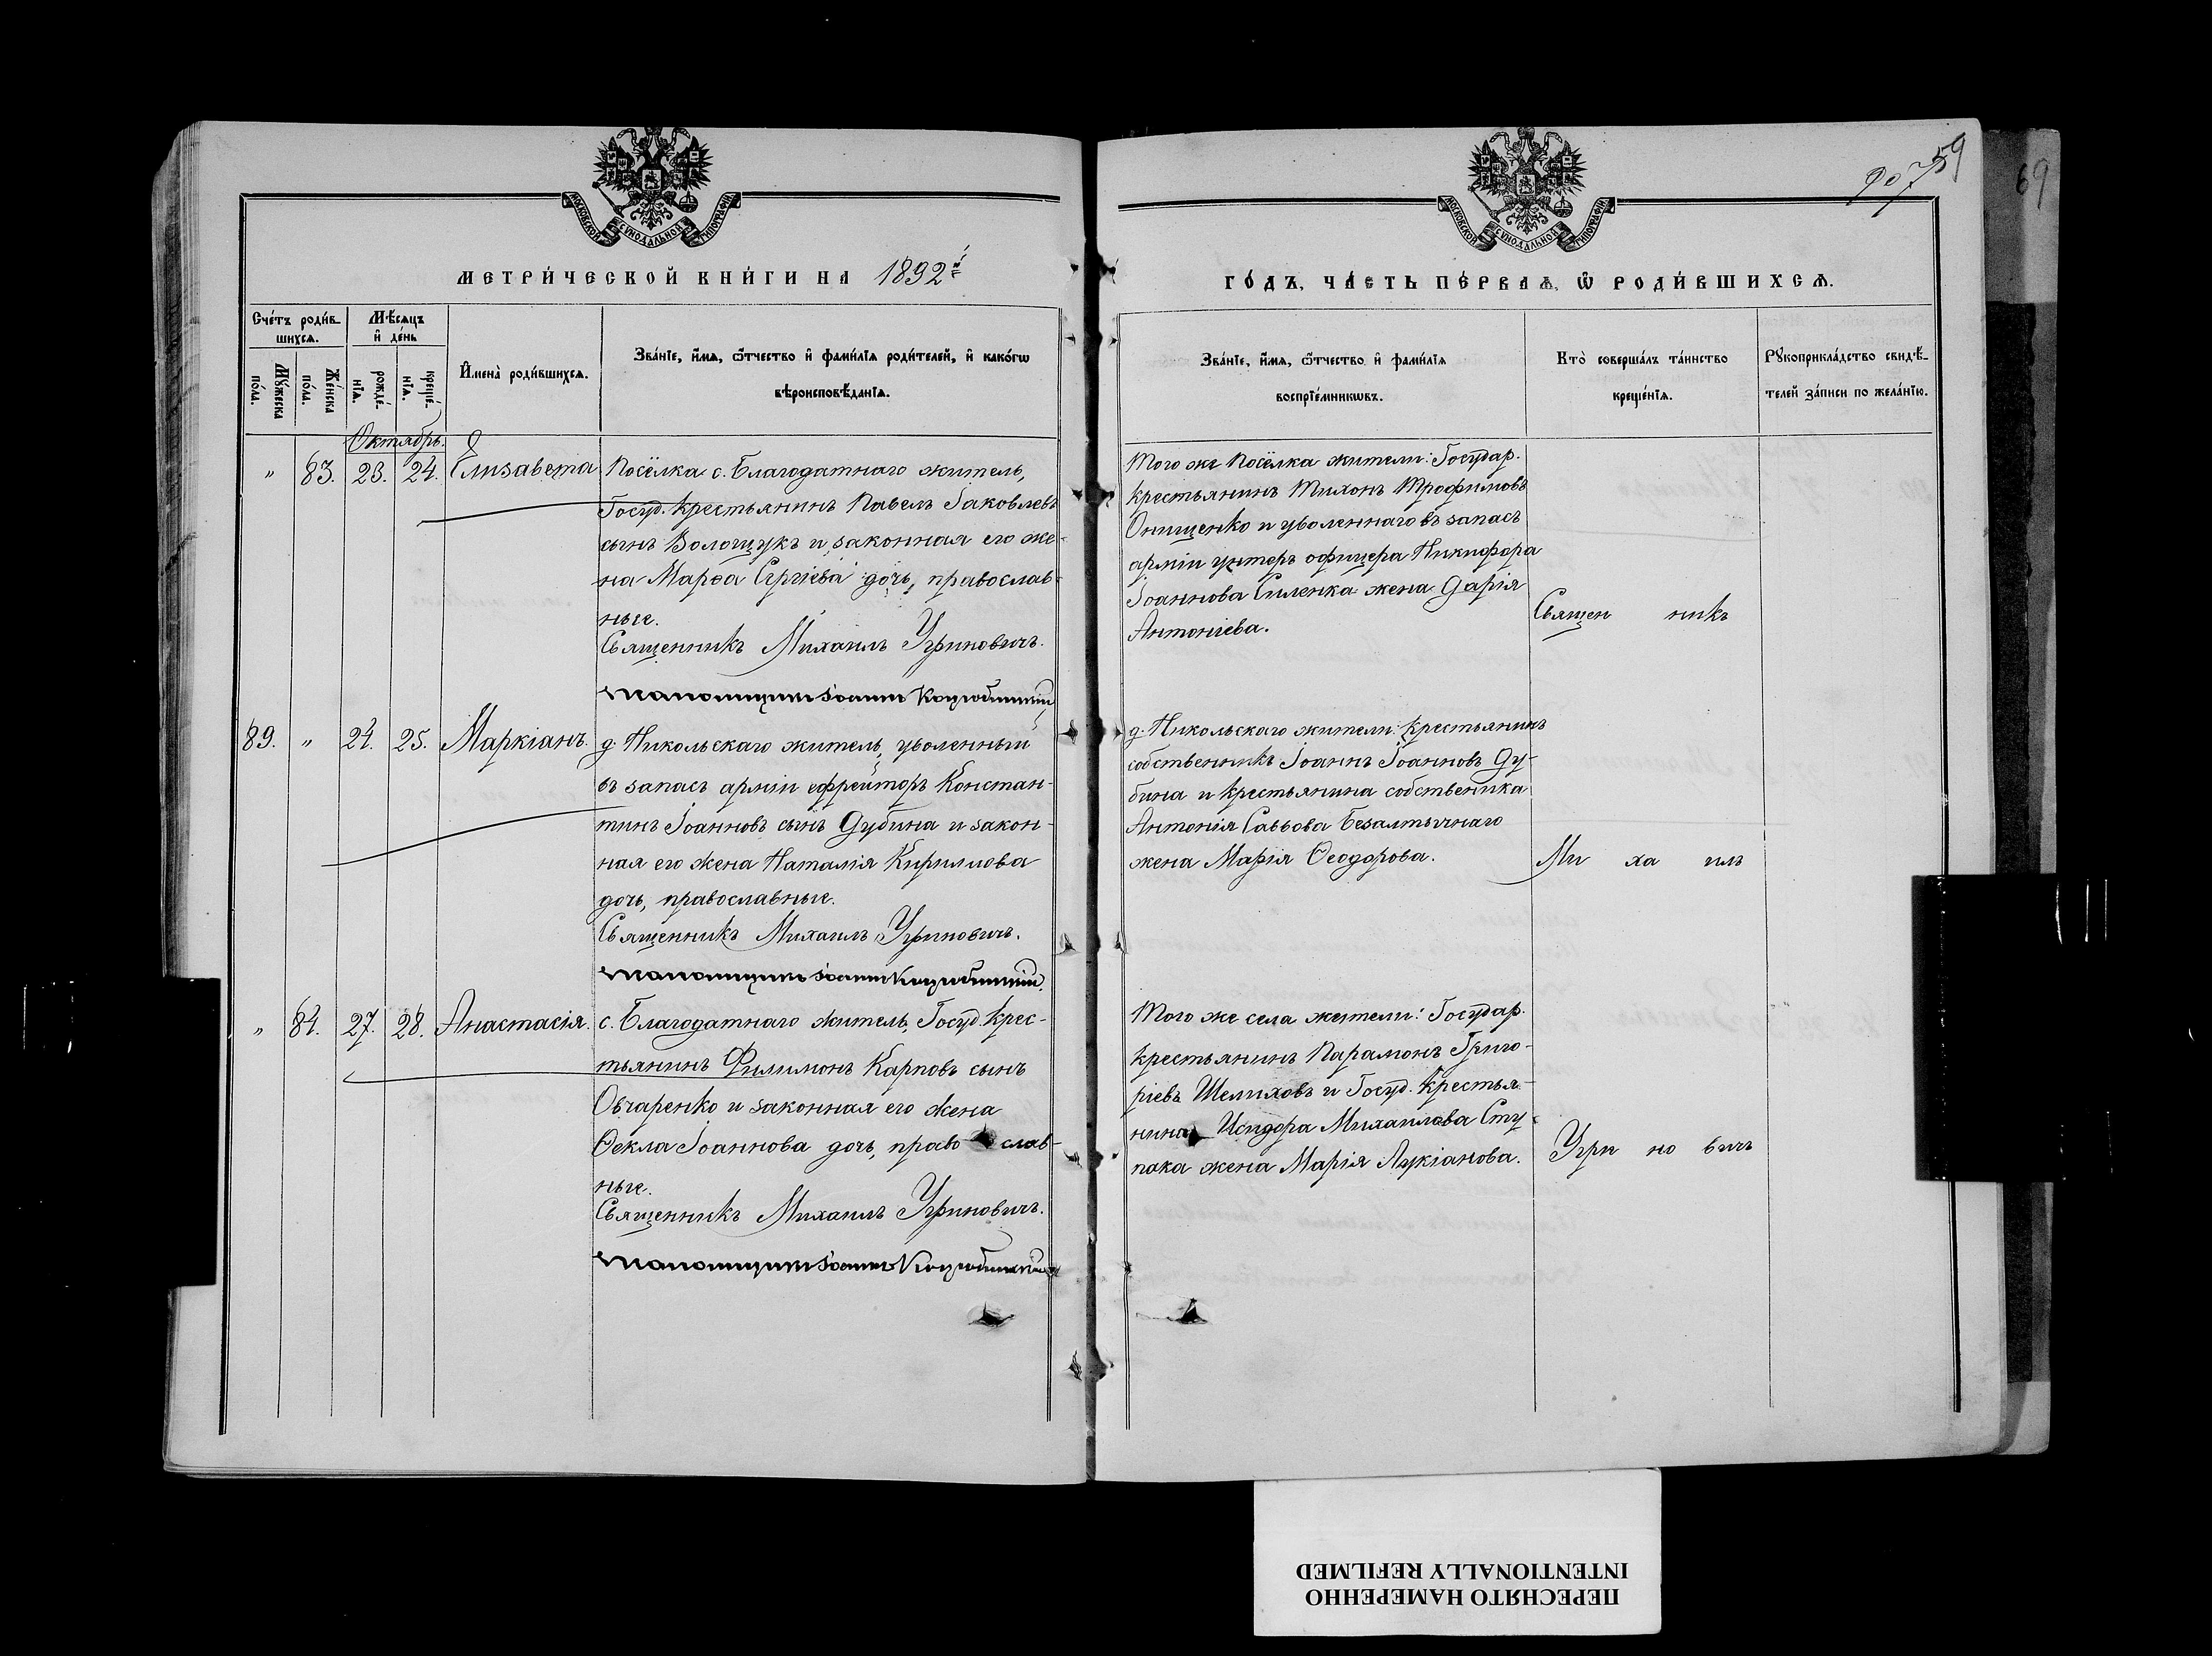 МОСКОВСКОЙ СѴНОДАЛЬНОЙ ТИПОГРАФІИ
МЕТРИ́ЧЕСКОЙ КНИ́ГИ НА 1892 й
Сче́тъ роди́в-
шихсѧ.
Мѣ́сѧцъ
и҆ де́нь
Мꙋ́жеска
по́ла.
Же́нска
по́ла.
рожде́-
нїѧ.
креще́-
нїѧ.
И҆мена̀ роди́вшихсѧ.
Зва́нїе, и҆́мѧ, ѻ҆́тчество и҆ фами́лїѧ роди́телей, и҆ како́гѡ
вѣроисповѣ́данїѧ.
Октябрь.
„ 83. 23. 24. Елизавета
Посёлка с. Благодатнаго житель,
Госуд. крестьянинъ Павелъ Іаковлевъ
сынъ Волощукъ и законная его же-
на Марѳа Сергіева дочь, православ-
ные.
Священникъ Михаилъ Угриновичъ.
89. „ 24. 25. Маркіанъ.
д. Никольскаго житель, уволенный
въ запасъ арміи ефрейторъ Констан-
тинъ Іоанновъ сынъ Дубина и закон-
ная его жена Наталія Кириллова
дочь, православные.
Священникъ Михаилъ Угриновичъ.
„ 84. 27. 28. Анастасія.
с. Благодатнаго житель, Госуд. крес-
тьянинъ Филимонъ Карповъ сынъ
Овчаренко и законная его жена
Ѳекла Іоаннова дочь, право слав-
ные.
Священникъ Михаилъ Угриновичъ.
907 59
69
МОСКОВСКОЙ СѴНОДАЛЬНОЙ ТИПОГРАФІИ
ГО́ДЪ, ЧА́СТЬ ПЕ́РВАѦ, Ѽ РОДИ́ВШИХСѦ.
Зва́нїе, и҆́мѧ, ѻ҆́тчество и҆ фами́лїѧ
воспрїе́мникѡвъ.
Кто̀ соверша́лъ та́инство
креще́нїѧ.
Рꙋкоприкла́дство свидѣ́-
телей за́писи по жела́нїю.
Того же Посёлка жители: Государ.
крестьянинъ Тихонъ Трофимовъ
Онищенко и уволеннаго въ запасъ
арміи унтеръ офицера Никифора
Іоаннова Силенка жена Дарія
Антоніева.
Священ никъ
д. Никольскаго жители: крестьянинъ
собственникъ Іоаннъ Іоанновъ Ду-
бина и крестьянина собственика
Антонія Саввова Безалтычнаго
жена Марія Ѳеодорова.
Ми ха илъ
Того же села жители: Государ.
крестьянинъ Парамонъ Григо-
ріевъ Шелиховъ и Госуд. крестья-
нина Исидора Михаилова Сту-
пака жена Марія Лукіанова.
Угри но вичъ
ПЕРЕСНЯТО НАМЕРЕННО
INTENTIONALLY REFILMED